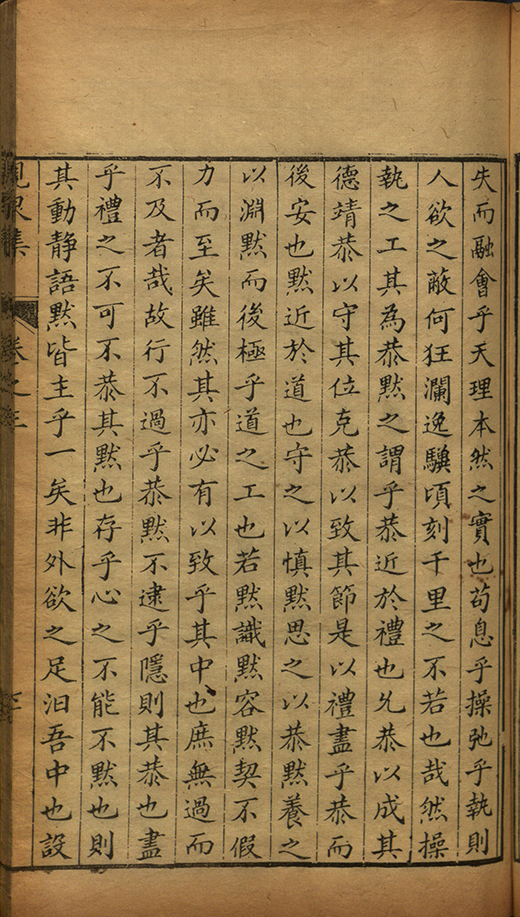 失而融會乎天理本然之實也苟息乎操弛乎執則
人欲之蔽何狂瀾逸驥頃刻千里之不若也哉然操
執之工其為恭默之謂乎恭近於禮也允恭以成其
德靖恭以守其位克恭以致其節是以禮盡乎恭而
後安也默近於道也守之以慎默思之以恭默養之
以淵默而後極乎道之工也若默識默容默契不假
力而至矣雖然其亦必有以致乎其中也庶無過而
不及者哉故行不過乎恭默不逮乎隱則其恭也盡
乎禮之不可不恭其默也存乎心之不能不默也則
其動靜語默皆主乎一矣非外欲之足汩吾中也設
峴泉集
卷之